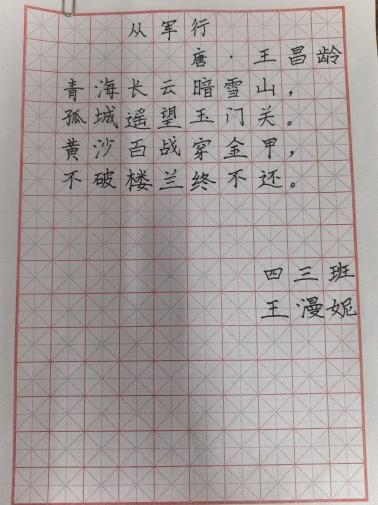 从军行
唐·王昌龄
青海长云暗雪山，
孤城遥望玉门关。
黄沙百战穿金甲，
不破楼兰终不还。
四三班
王漫妮